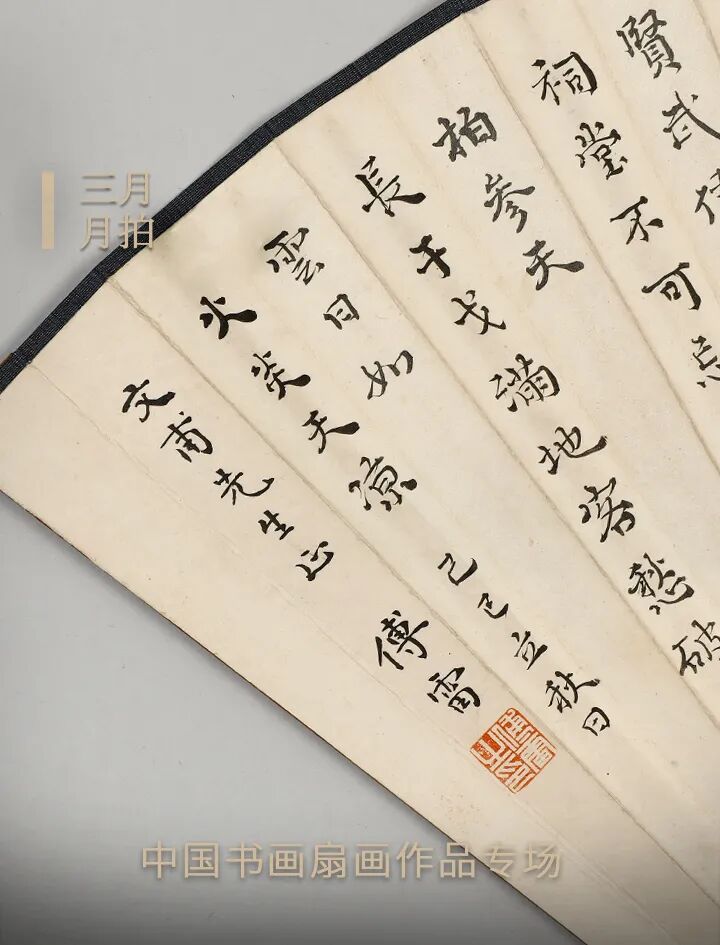 三月
月拍
賢武
祠堂不可忘
柏參天
長干戈滿地客愁破
雲日如
火炎天涼 己巳立秋日
文甫先生正 傅雷
中国书画扇画作品专场